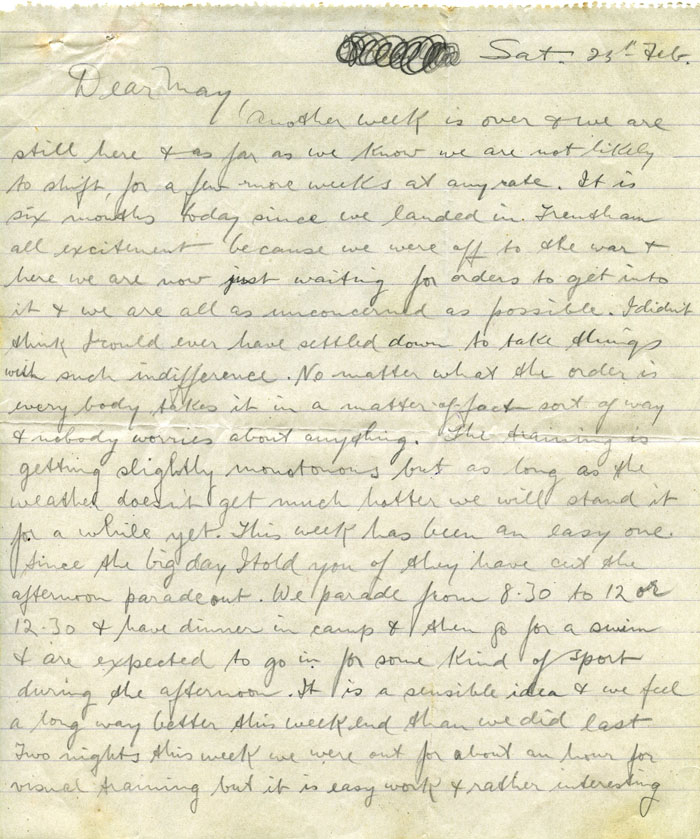 Sat. 23rd Feb.
Dear May
Another week is over & we are
still here & as far as we know we are not likely
to shift, for a few more weeks at any rate. It is
six months today since we landed in Trentham
all excitement because we were off to the war &
here we are now just waiting for orders to get into
it & we are all as unconcerned as possible. I didn't
think I could ever have settled down to take things
with such indifference. No matter what the order is
every body takes it in a matter of fact sort of way
& nobody worries about anything. The training is
getting slightly monotonous but as long as the
weather doesn't get much hotter we will stand it
for a while yet. This week has been an easy one.
Since the big day I told you of they have cut the
afternoon parade out. We parade from 8.30 to 12 or
12.30 & have dinner in camp & then go for a swim
& are expected to go in for some kind of sport
during the afternoon. It is a sensible idea & we feel
a long way better this week end than we did last
Two nights this week we were out for about an hour for
visual training but it is easy work & rather interesting